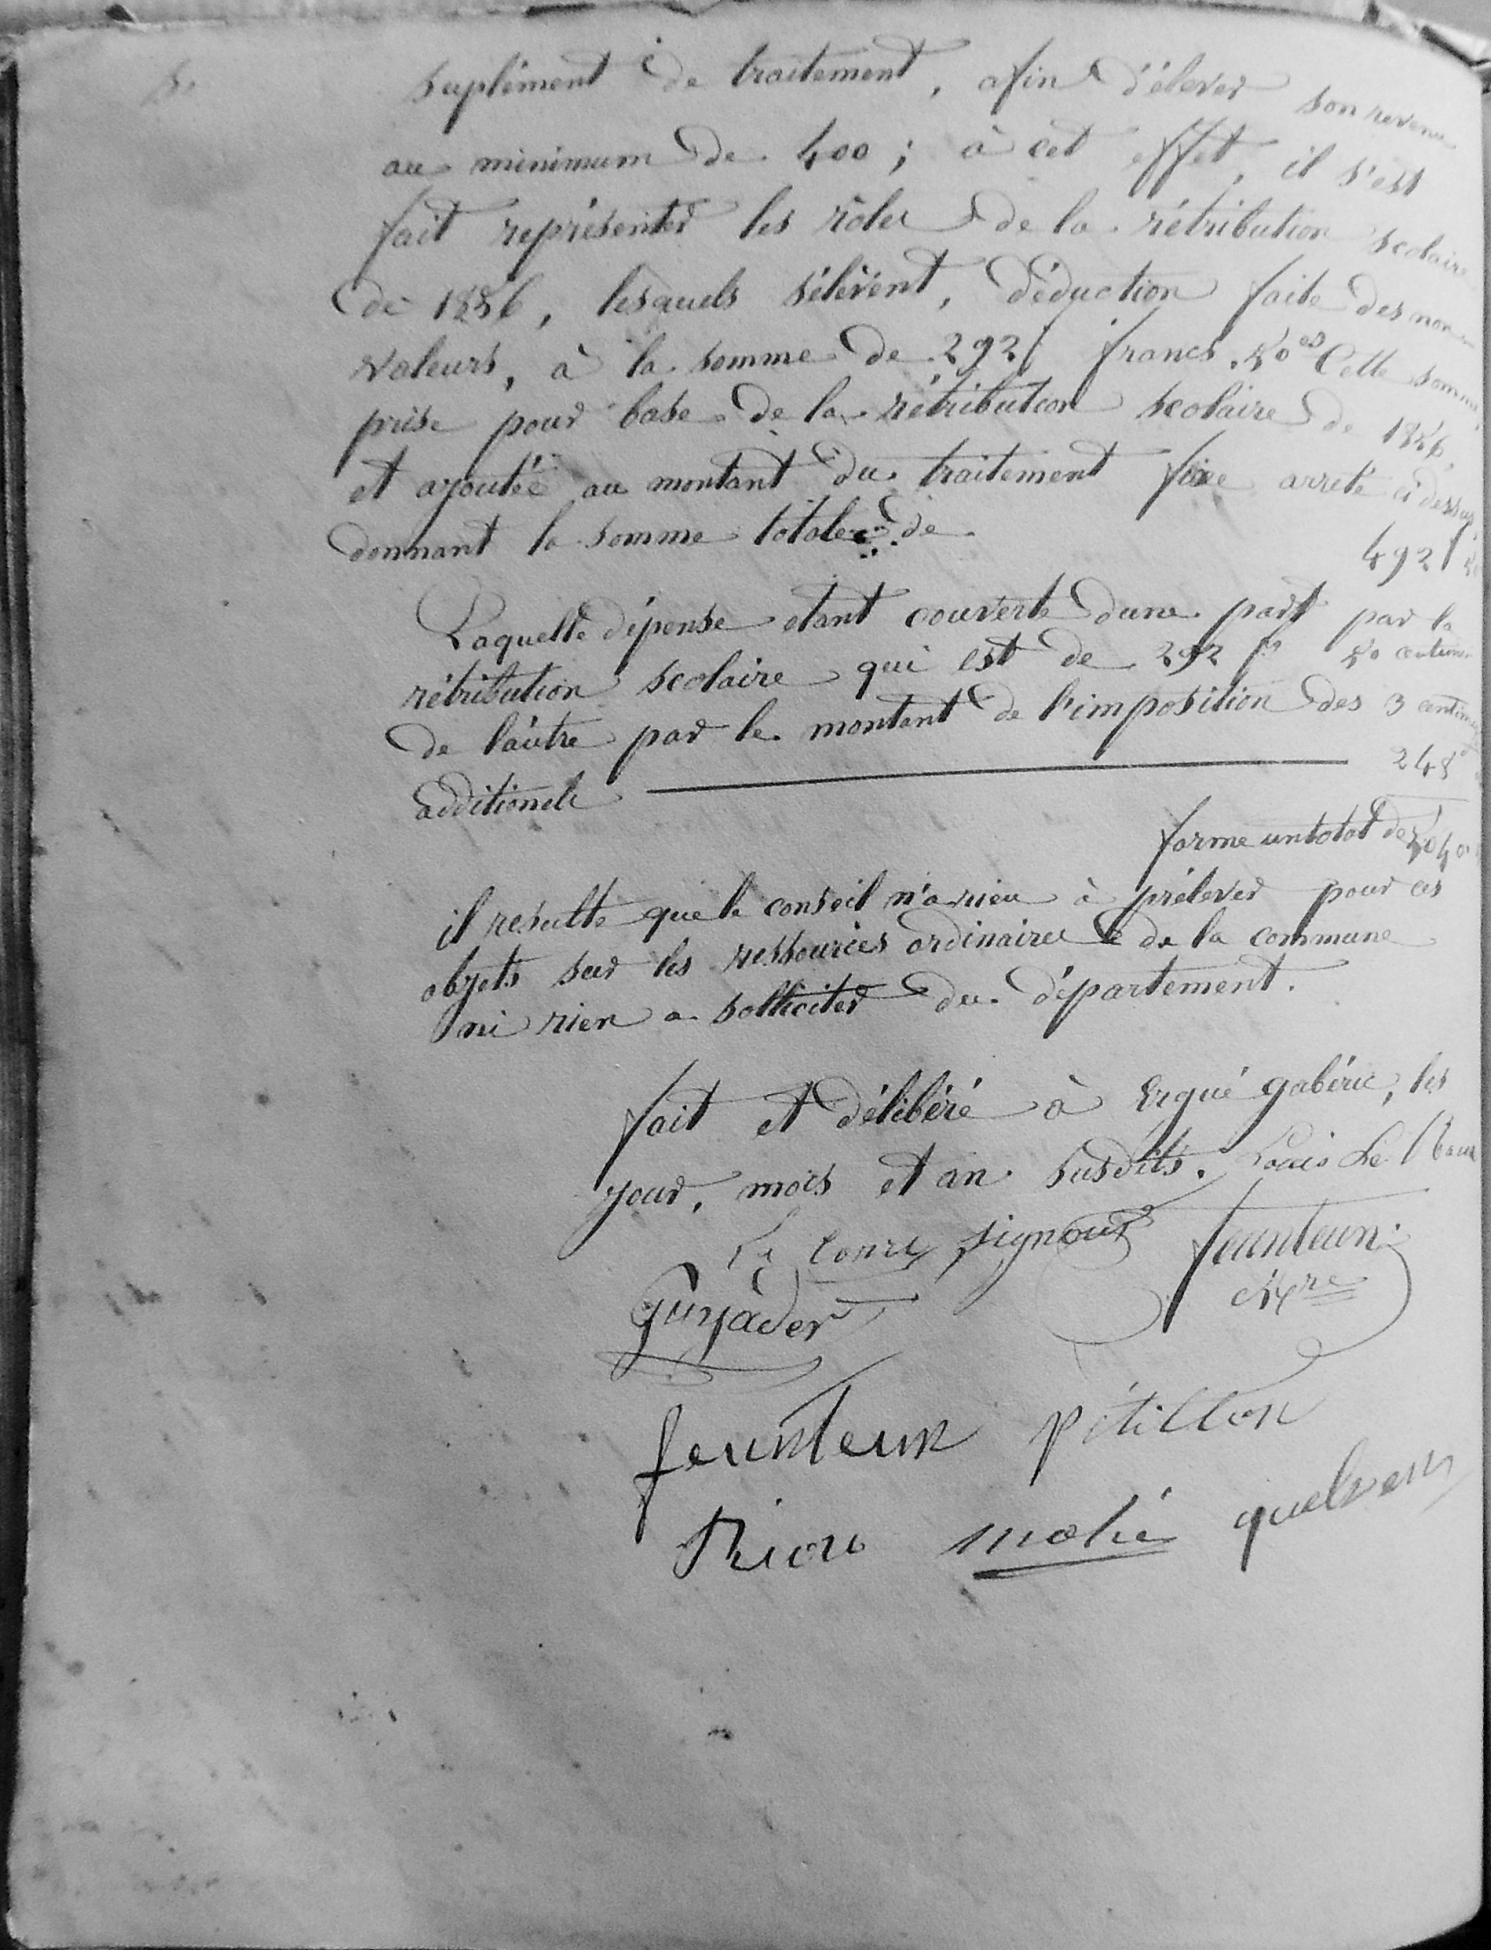 suplément de traitement, afin d'élever son revenu
au minimum de 400 ; à cet effet, il s'est
fait représenter les rôles de la rétribution scolaire
de 1856, lesquels s'élèvent, déduction faite des non
valeurs, à la somme de 292 f francs. 50 es Cette somme
prise pour base de la rétribution scolaire de 1856,
et ajoutée au montant du traitement fixe arrêté ci dessus,
donnant la somme totale de 492 f 50
Laquelle dépense etant couverte dune part par la
rétribution scolaire qui est de 292 f 50 centimes
de l'autre par le montant de l'imposition des 3 centimes
additionels 248
forme un total de 540
il resulte que le conseil n'a rien à prélever pour ces
objets sur les ressources ordinaires de la commune
ni rien a solliciter du département.
fait et délibéré à Ergué gabéric, les
jour, mois et an susdits. Louis Le
signour feunteun
Guyader Mre
feunteun pétillon
Riou mahé quelven